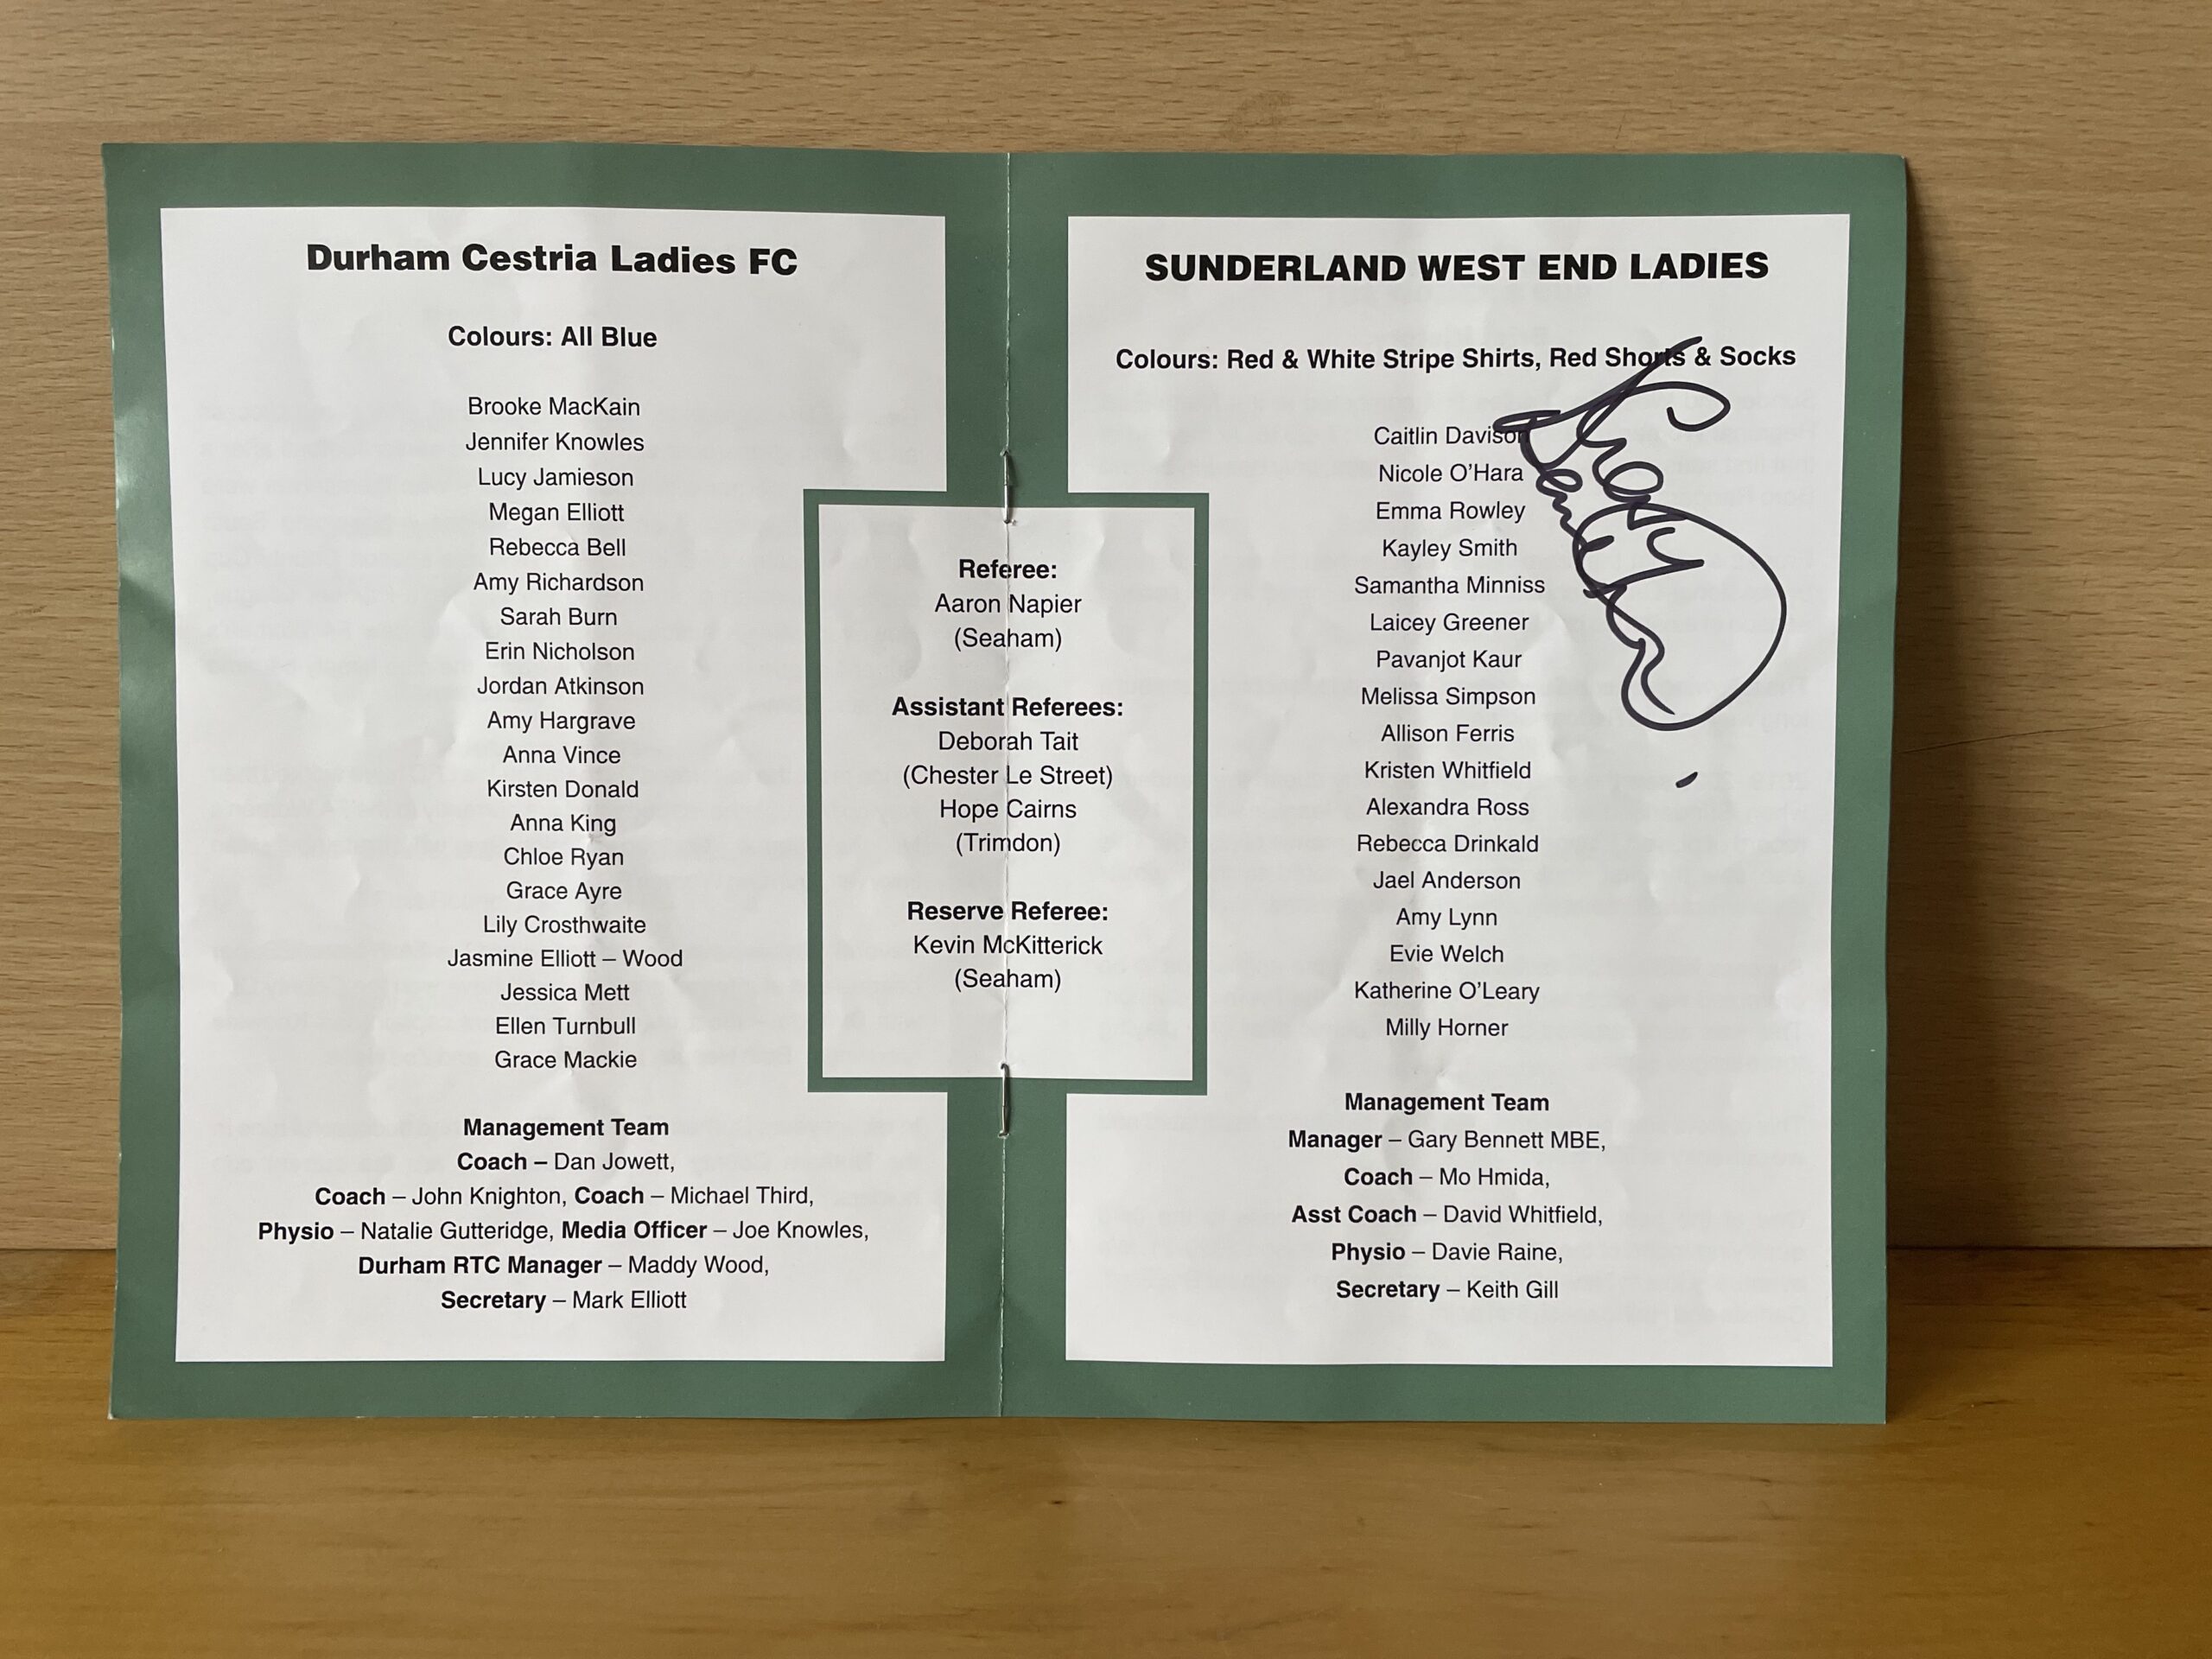 Durham Cestria Ladies FC
Colours: All Blue
Brooke MacKain
Jennifer Knowles
Lucy Jamieson
Megan Elliott
Rebecca Bell
Amy Richardson
Sarah Burn
Erin Nicholson
Jordan Atkinson
Amy Hargrave
Anna Vince
Kirsten Donald
Anna King
Chloe Ryan
Grace Ayre
Lily Crosthwaite
Jasmine Elliott – Wood
Jessica Mett
Ellen Turnbull
Grace Mackie
Management Team
Coach – Dan Jowett,
Coach – John Knighton, Coach – Michael Third,
Physio – Natalie Gutteridge, Media Officer – Joe Knowles,
Durham RTC Manager – Maddy Wood,
Secretary – Mark Elliott
Referee:
Aaron Napier
(Seaham)
Assistant Referees:
Deborah Tait
(Chester Le Street)
Hope Cairns
(Trimdon)
Reserve Referee:
Kevin McKitterick
(Seaham)
SUNDERLAND WEST END LADIES
Colours: Red & White Stripe Shirts, Red Shorts & Socks
Caitlin Davison
Nicole O'Hara
Emma Rowley
Kayley Smith
Samantha Minniss
Laicey Greener
Pavanjot Kaur
Melissa Simpson
Allison Ferris
Kristen Whitfield
Alexandra Ross
Rebecca Drinkald
Jael Anderson
Amy Lynn
Evie Welch
Katherine O'Leary
Milly Horner
Management Team
Manager – Gary Bennett MBE,
Coach – Mo Hmida,
Asst Coach – David Whitfield,
Physio – Davie Raine,
Secretary – Keith Gill